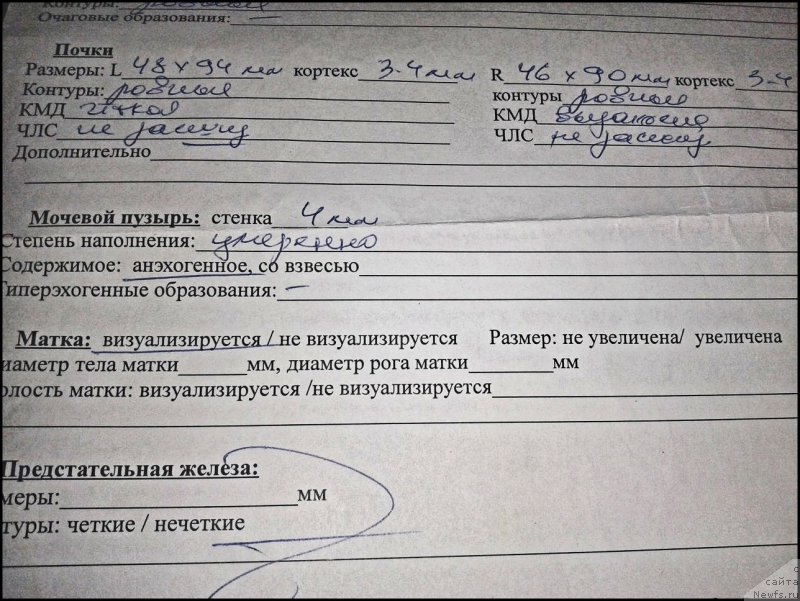 Контуры: ровные
Очаговые образования: —
Почки
Размеры: L 48 x 94 мм кортекс 3-4 мм R 46 x 90 мм кортекс 3-4
Контуры: ровные контуры ровные
КМД четкая КМД
ЧЛС не расшир ЧЛС не расшир
Дополнительно
Мочевой пузырь: стенка 4 мм
Степень наполнения: умеренно
Содержимое: анэхогенное, со взвесью
Гиперэхогенные образования: —
Матка: визуализируется / не визуализируется Размер: не увеличена/ увеличена
иаметр тела матки мм, диаметр рога матки мм
олость матки: визуализируется /не визуализируется
Предстательная железа:
меры: мм
туры: четкие / нечеткие
с
сайта
Newfs.ru